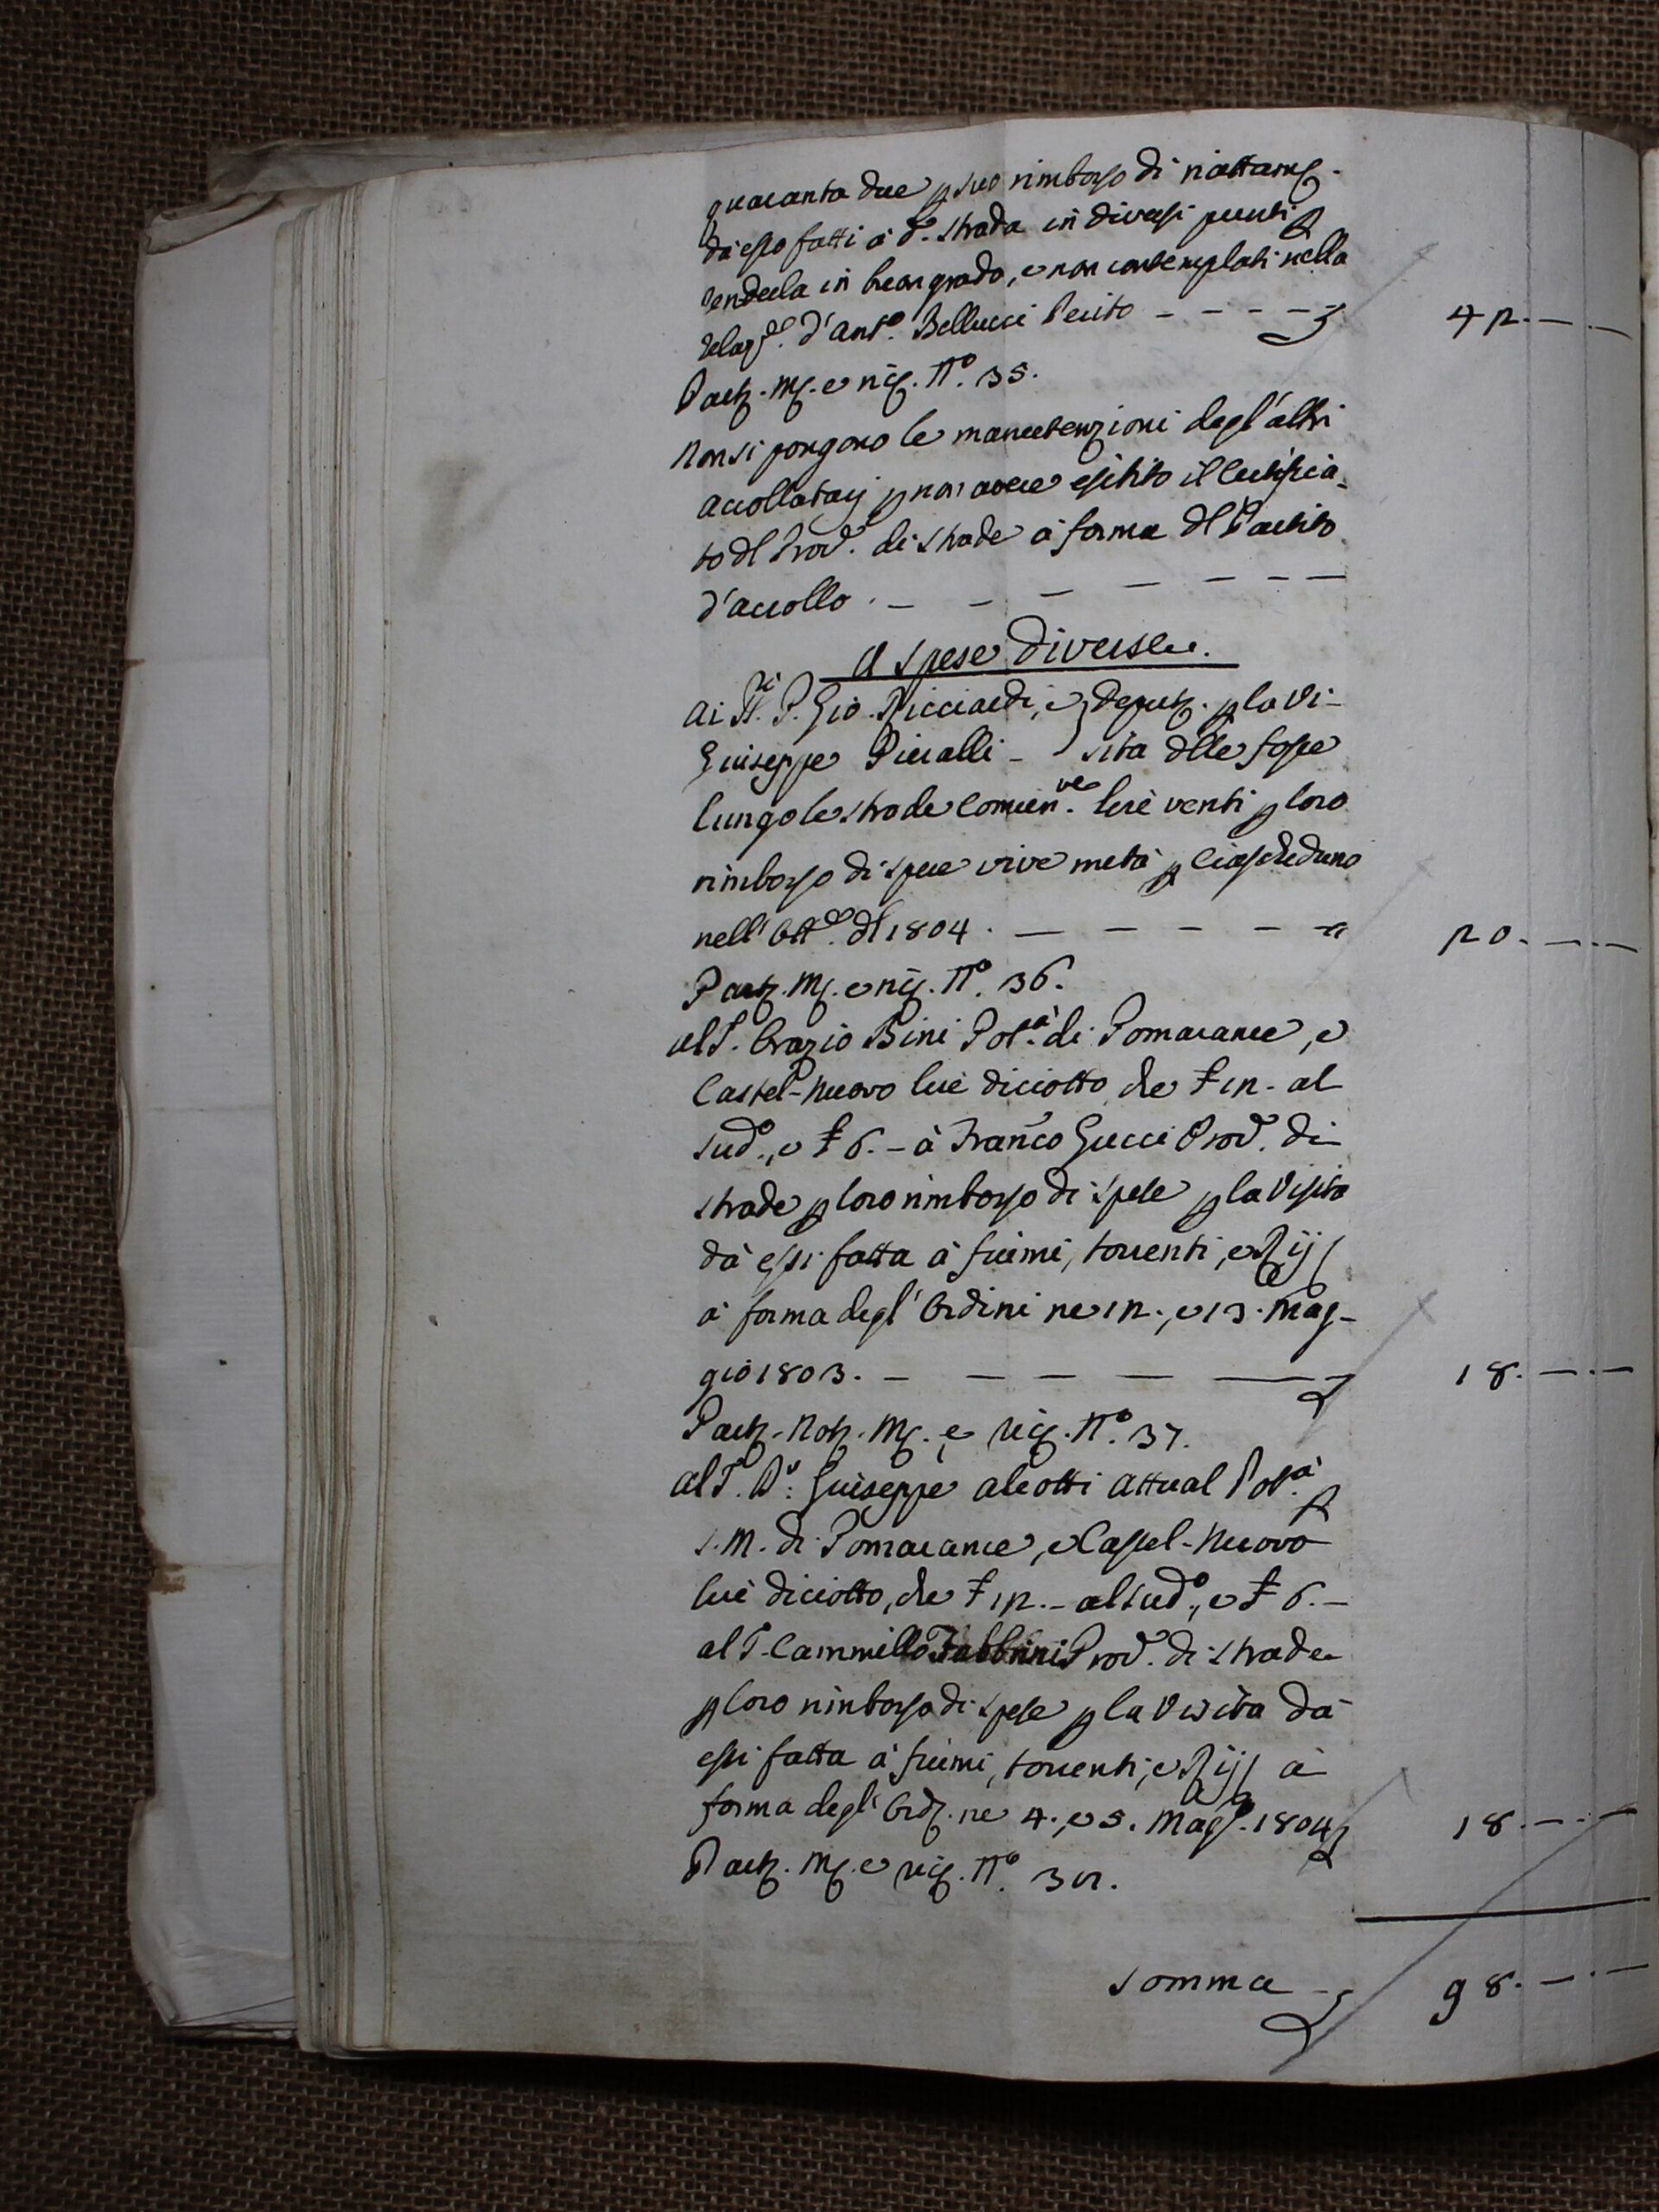 quaranta due p suo rimborso di riattam.
da esso fatti à d.ª strada in diversi punti p
renderla in buon grado, e non contemplati nella
Relaz.e d'Ant.o Bellucci Perito - - - - 42. — . —
Part. M. e ric. N.o 35.
Non si pongono le manutenzioni degl'altri
accollatarj p non avere esibito il Certificia-
to dl Prov. di strade à forma dl Partito
d'accollo . — — — — — — —
A Spese Diverse.
Ai SS.ri P. Gio. Ricciardi, e } deput. p la Vi-
Giuseppe Pieralli - } sita dlle fosse
lungo le strade Comun.ve lire venti p loro
rimborso di spese vive metà p ciascheduno
nell' Ott.e dl 1804 . — — — — — 20. — . —
Part. M. e ric. N.o 36.
Al S. Orazio Bini Pot.à di Pomarance, e
Castel-Nuovo lire diciotto, che £ 12. - al
sud.o, e £ 6. - à Franco Gucci Prov. di
strade p loro rimborso di spese p la Visita
dà essi fatta à fiumi, torrenti, e Rij
à forma degl' Ordini ne 12., e 13. Mag-
gio 1803. — — — — — 18. — . —
Part. Not. M. e ric. N.o 37.
Al S. D.r Giuseppe Aleotti Attual Pot.à p
S. M. di Pomarance, e Castel-Nuovo
lire diciotto, che £ 12. - al sud.o, e £ 6. -
al S. Cammillo Fabbrini Prov. di strade
p loro rimborso di spese p la Visita dà
essi fatta à fiumi, torrenti, e Rij à
forma degl' Ord. ne 4., e 5. Mag.o 1804 18. — . —
Part. M. e ric. N.o 38.
Somma - 98. — . —